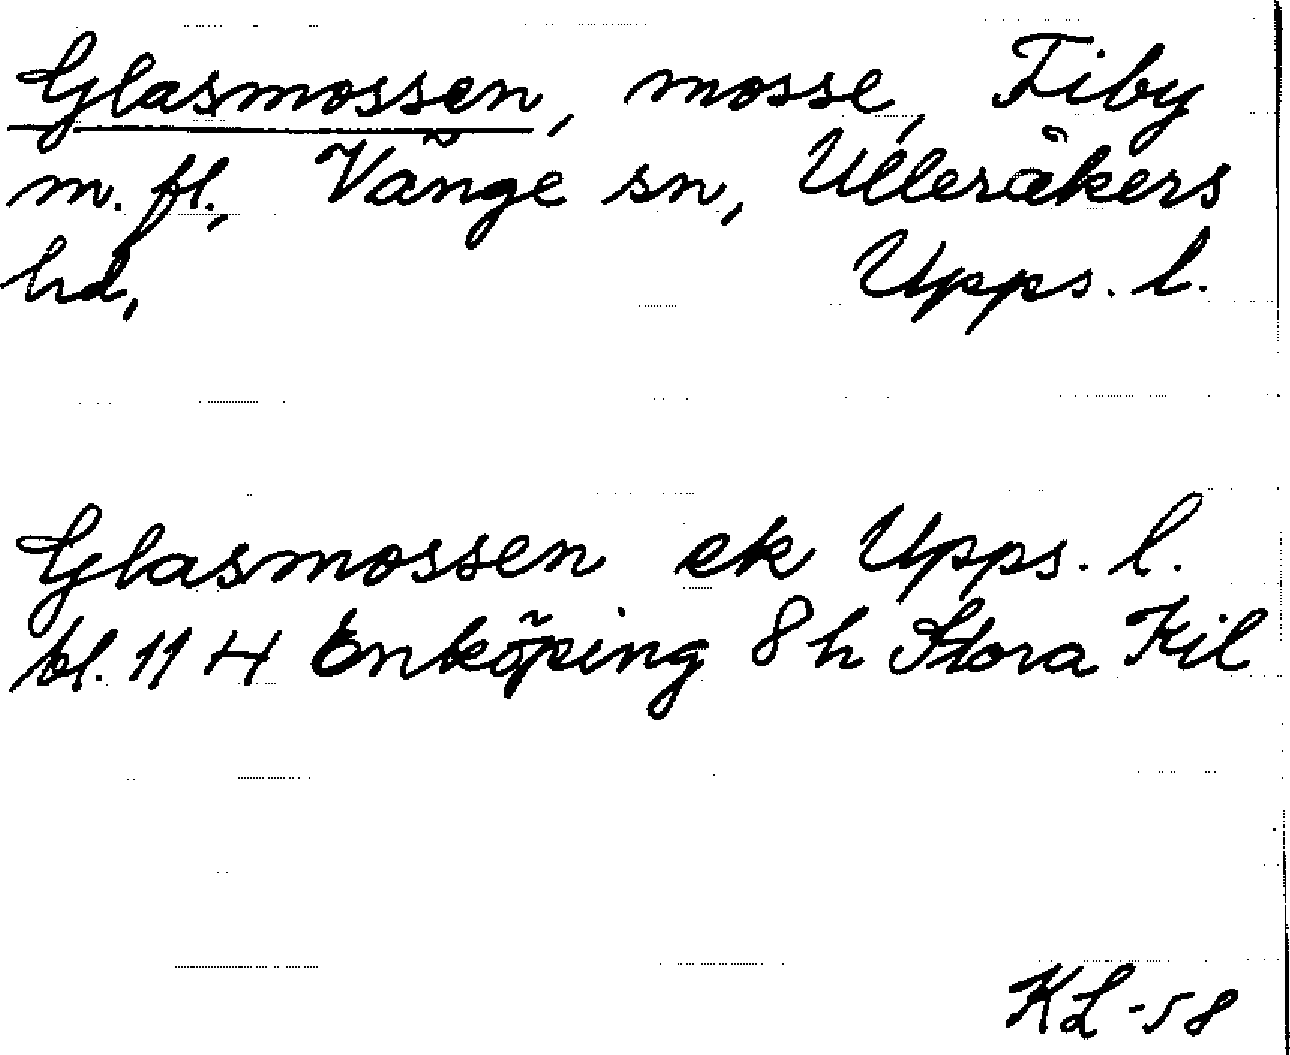 Glasmossen, mosse, Fiby
m. fl., Vänge sn, Ulleråkers
hd, Upps. l.
Glasmossen ek Upps. l.
bl. 114 Enköping 8h Stora Kil
KL-58